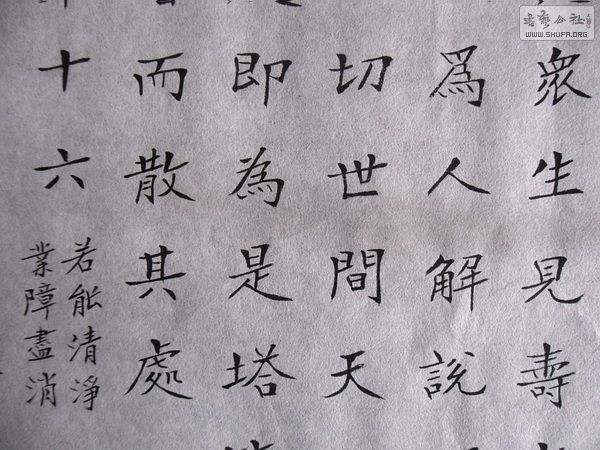 眾生見壽
爲人解說
切世間天
即為是塔
而散其處
十六
若能清淨
業障盡消
书艺公社
WWW.SHUFA.ORG